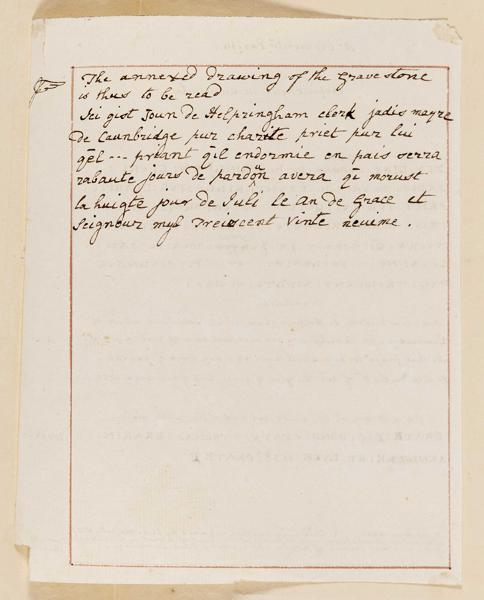 The annexed drawing of the Gravestone
is thus to be read
Ici gist Joun de Helpringham clerk jadis mayre
de Caunbridge pur charite priet pur lui
qel --- priant qil endormie en pais serra
rabaute jours de pardoun avera qi morust
la huigte jour de Juli le an de Grace et
Seignour myl Treiscent vinte neuime.